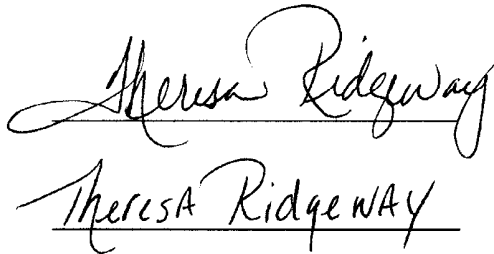 Theresa Ridgeway
TheresA RidgewAY